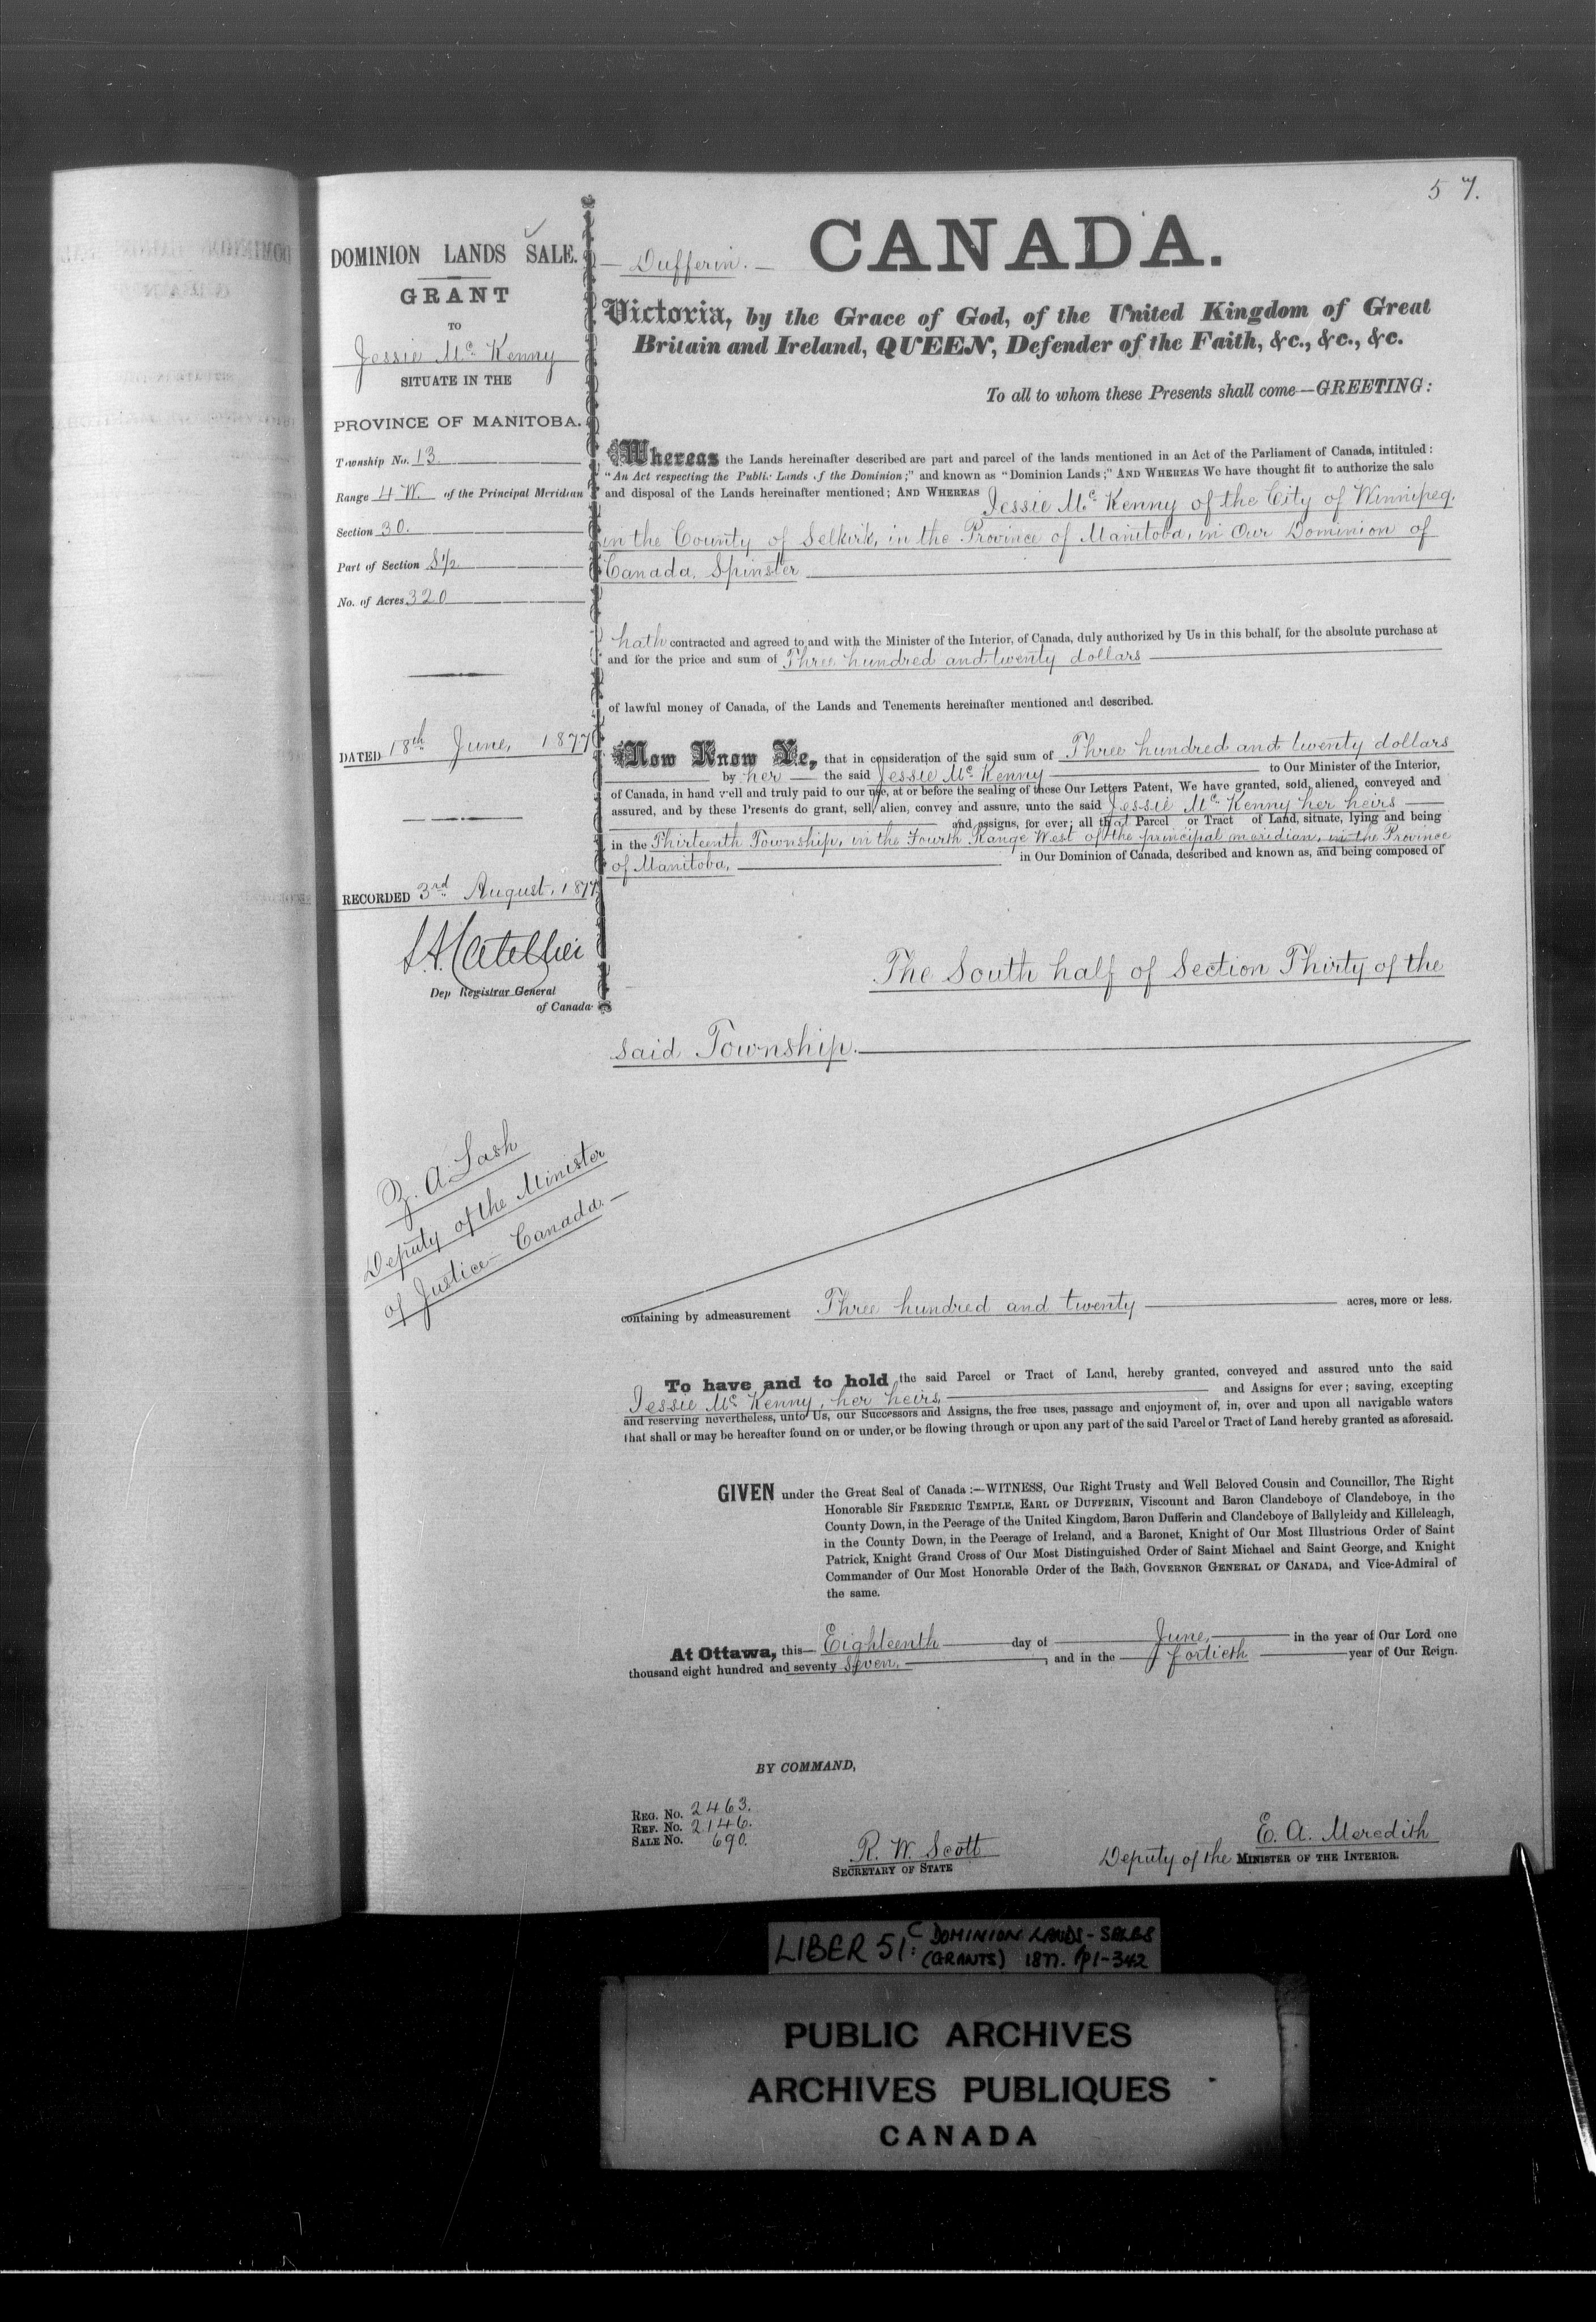 57.
DOMINION LANDS SALE.
GRANT
TO
Jessie Mc Kenny
SITUATE IN THE
PROVINCE OF MANITOBA.
Township No. 13.
Range 4 W. of the Principal Meridian
Section 30.
Part of Section S 1/2
No. of Acres 320
DATED 18th June, 1877
RECORDED 3rd August, 1877
Dep Registrar General
of Canada
Z. A. Lash
Deputy of the Minister
of Justice Canada.
Dufferin.
CANADA.
Victoria, by the Grace of God, of the United Kingdom of Great
Britain and Ireland, QUEEN, Defender of the Faith, &c., &c., &c.
To all to whom these Presents shall come—GREETING:
Whereas the Lands hereinafter described are part and parcel of the lands mentioned in an Act of the Parliament of Canada, intituled:
"An Act respecting the Public Lands of the Dominion;" and known as "Dominion Lands;" AND WHEREAS We have thought fit to authorize the sale
and disposal of the Lands hereinafter mentioned; AND WHEREAS Jessie Mc Kenny of the City of Winnipeg,
in the County of Selkirk, in the Province of Manitoba, in Our Dominion of
Canada, Spinster
hath contracted and agreed to and with the Minister of the Interior, of Canada, duly authorized by Us in this behalf, for the absolute purchase at
and for the price and sum of Three hundred and twenty dollars
of lawful money of Canada, of the Lands and Tenements hereinafter mentioned and described.
Now Know Ye, that in consideration of the said sum of Three hundred and twenty dollars
by her the said Jessie Mc Kenny to Our Minister of the Interior,
of Canada, in hand well and truly paid to our use, at or before the sealing of these Our Letters Patent, We have granted, sold, aliened, conveyed and
assured, and by these Presents do grant, sell, alien, convey and assure, unto the said Jessie Mc Kenny her heirs
and assigns, for ever; all that Parcel or Tract of Land, situate, lying and being
in the Thirteenth Township, in the Fourth Range West of the principal meridian, in the Province
of Manitoba, in Our Dominion of Canada, described and known as, and being composed of
The South half of Section Thirty of the
said Township.
containing by admeasurement Three hundred and twenty acres, more or less.
To have and to hold the said Parcel or Tract of Land, hereby granted, conveyed and assured unto the said
Jessie Mc Kenny, her heirs, and Assigns for ever; saving, excepting
and reserving nevertheless, unto Us, our Successors and Assigns, the free uses, passage and enjoyment of, in, over and upon all navigable waters
that shall or may be hereafter found on or under, or be flowing through or upon any part of the said Parcel or Tract of Land hereby granted as aforesaid.
GIVEN under the Great Seal of Canada:—WITNESS, Our Right Trusty and Well Beloved Cousin and Councillor, The Right
Honorable Sir FREDERIC TEMPLE, EARL OF DUFFERIN, Viscount and Baron Clandeboye of Clandeboye, in the
County Down, in the Peerage of the United Kingdom, Baron Dufferin and Clandeboye of Ballyleidy and Killeleagh,
in the County Down, in the Peerage of Ireland, and a Baronet, Knight of Our Most Illustrious Order of Saint
Patrick, Knight Grand Cross of Our Most Distinguished Order of Saint Michael and Saint George, and Knight
Commander of Our Most Honorable Order of the Bath, GOVERNOR GENERAL OF CANADA, and Vice-Admiral of
the same.
At Ottawa, this Eighteenth day of June, in the year of Our Lord one
thousand eight hundred and seventy seven, and in the fortieth year of Our Reign.
BY COMMAND,
REG. No. 2463.
REF. No. 2146.
SALE No. 690.
R. W. Scott
SECRETARY OF STATE
E. A. Meredith
Deputy of the MINISTER OF THE INTERIOR.
LIBER 51C: DOMINION LANDS - SALES
(GRANTS) 1877. pp1-342
PUBLIC ARCHIVES
ARCHIVES PUBLIQUES
CANADA